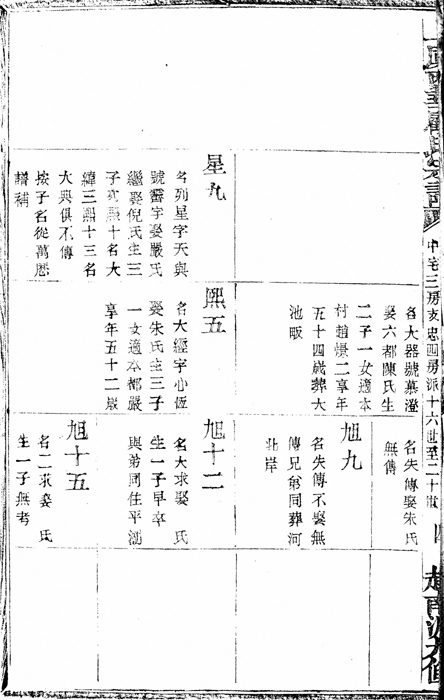 中宅三房支忠四房派十六世至二十世
四
名大器號慕澄
娶六都陳氏生
二子一女適本
村趙憬二享年
五十四歲葬大
池畈
星九
名列星字天與
號
字娶嚴氏
繼娶倪氏生三
子
熙十名大
緯三熙十三名
大興俱不傳
按子名從萬曆
譜補
熙五
名大經字心恆
娶朱氏生三子
一女適本都嚴
享年五十二歲
名失傳娶朱氏
無傳
旭九
名失傳不娶無
傳兄弟同葬河
北岸
旭十二
名大求娶 氏
生一子早卒
與弟同住平湖
旭十五
名二求娶 氏
生一子無考